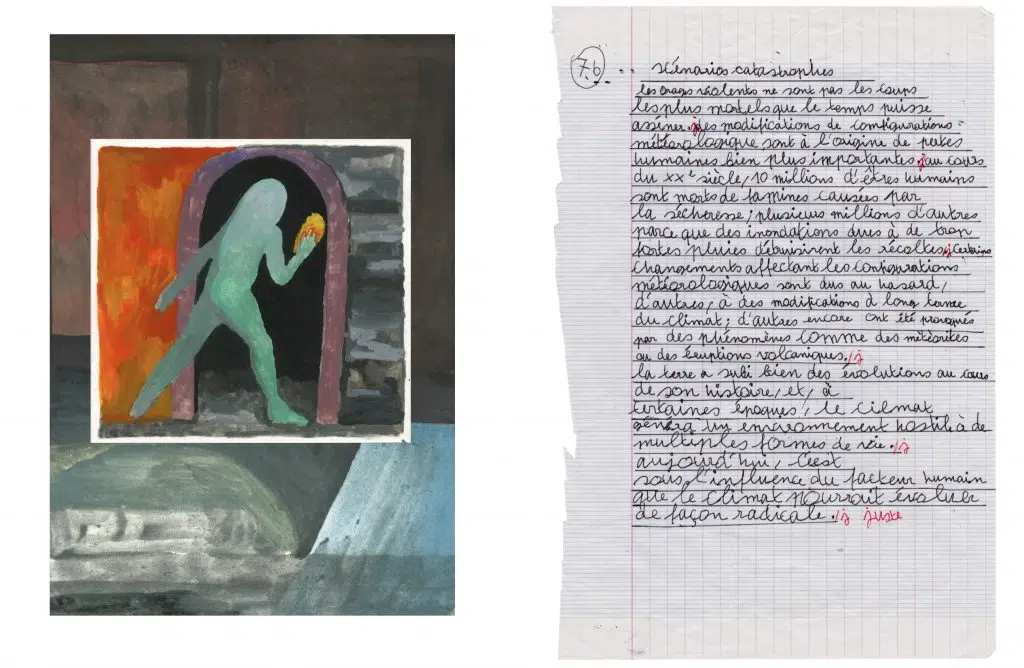 76 .. scénarios catastrophes
les orages violents ne sont pas les coups
les plus mortels que le temps puisse
asséner.j des modifications de configurations
météorologique sont à l'origine de pertes
humaines bien plus importantes.j au cours
du XXe siècle, 10 millions d'êtres humains
sont morts de famines causées par
la sécheresse; plusieurs millions d'autres
parce que des inondations dues à de trop
fortes pluies détruisirent les récoltes.j certains
changements affectant les configurations
météorologiques sont dus au hasard,
d'autres, à des modifications à long terme
du climat; d'autres encore ont été provoqués
par des phénomènes comme des météorites
ou des éruptions volcaniques./j
la terre a subi bien des évolutions au cours
de son histoire, et, à
certaines époques, le cilmat
généra un environnement hostile à de
multiples formes de vie./j
aujourd'hui, c'est
sous l'influence du facteur humain
que le climat pourrait évoluer
de façon radicale./j juste